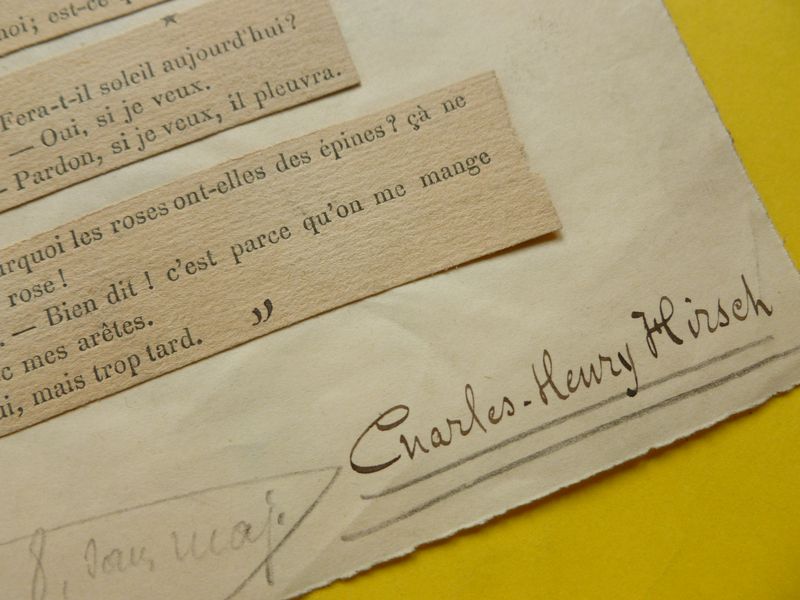 moi; est-ce
*
Fera-t-il soleil aujourd'hui?
— Oui, si je veux.
— Pardon, si je veux, il pleuvra.
urquoi les roses ont-elles des épines? çà ne
rose!
. — Bien dit! c'est parce qu'on me mange
c mes arêtes.
ui, mais trop tard. »
Charles-Henry Hirsch
8, sans maj.